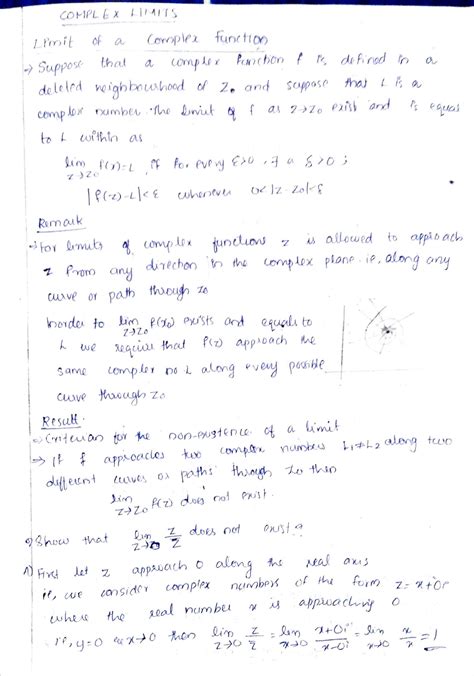 COMPLEX LIMITS
Limit of a Complex Function
→ Suppose that a complex function f is defined in a
deleted neighbourhood of Z₀ and suppose that L is a
complex number. The limit of f as z→z₀ exist and is equal
to L written as
lim z→z₀ f(z)=L, if for every ε>0, ∃ a δ>0 ;
|f(z)-L|<ε whenever 0<|z-z₀|<δ
Remark
→ For limits of complex functions z is allowed to approach
z from any direction in the complex plane ie, along any
curve or path through z₀
Inorder to lim z→z₀ f(z₀) exists and equals to
L we require that f(z) approach the
same complex no L along every possible
curve through z₀
Result.
→ Criterian for the non-existence of a limit
→ If f approaches two complex number L₁≠L₂ along two
different curves or paths through z₀ then
lim z→z₀ f(z) does not exist.
Q) Show that lim z→0 z/z̄ does not exist?
A) First let z approach 0 along the real axis
ie, we consider complex numbers of the form z=x+0i
where the real number x is approaching 0
ie, y=0 as x→0 then lim z→0 z/z̄ = lim x→0 x+0i/x-0i = lim x→0 x/x = 1